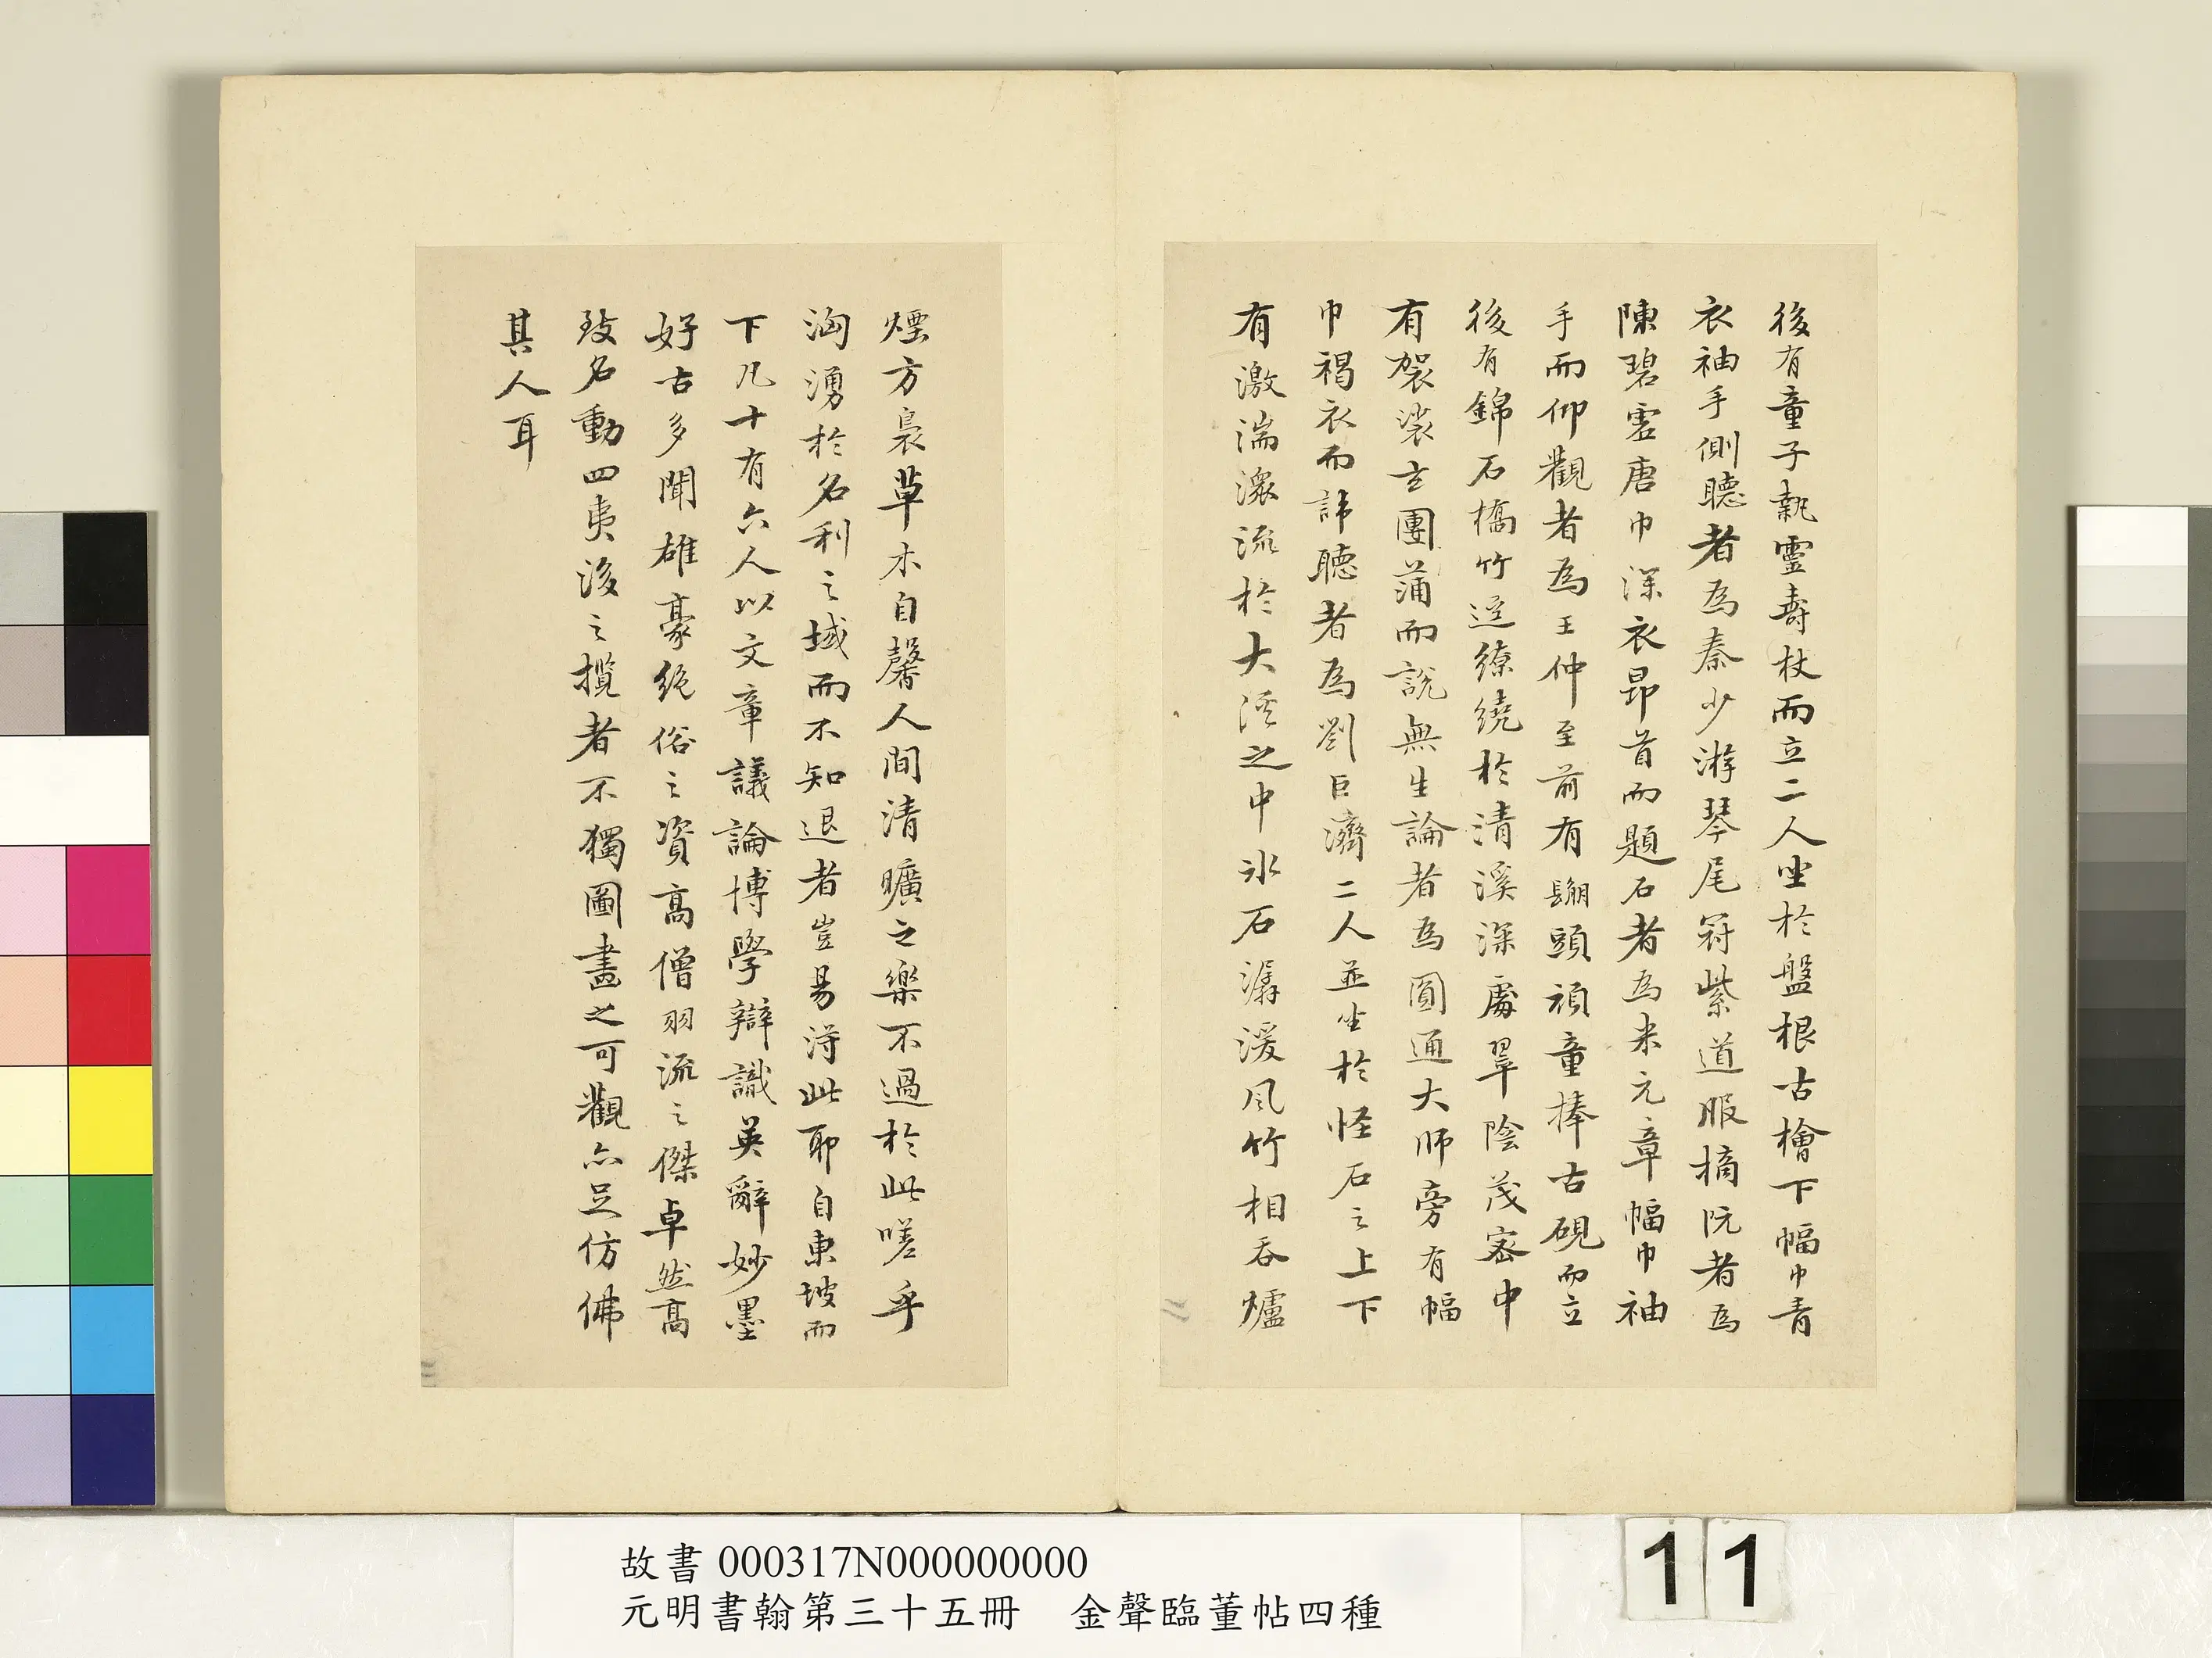 後有童子執靈壽杖而立二人坐於盤根古檜下幅巾青
衣袖手側聽者為秦少游琴尾冠紫道服摘阮者為
陳碧虛唐巾深衣昂首而題石者為米元章幅巾袖
手而仰觀者為王仲至前有鬅頭頑童捧古硯而立
後有錦石橋竹逕繚繞於清溪深處翠陰茂密中
有袈裟坐團蒲而說無生論者為圓通大師旁有幅
巾褐衣而諦聽者為劉巨濟二人並坐於怪石之上下
有激湍潀流於大溪之中水石潺湲風竹相吞爐
煙方裊草木自馨人間清曠之樂不過於此嗟乎
洶湧於名利之域而不知退者豈易得此耶自東坡而
下凡十有六人以文章議論博學辯識英辭妙墨
好古多聞雄豪絕俗之資高僧羽流之傑卓然高
致名動四夷後之攬者不獨圖畫之可觀亦足仿佛
其人耳
故書 000317N000000000
元明書翰第三十五冊 金聲臨董帖四種
11